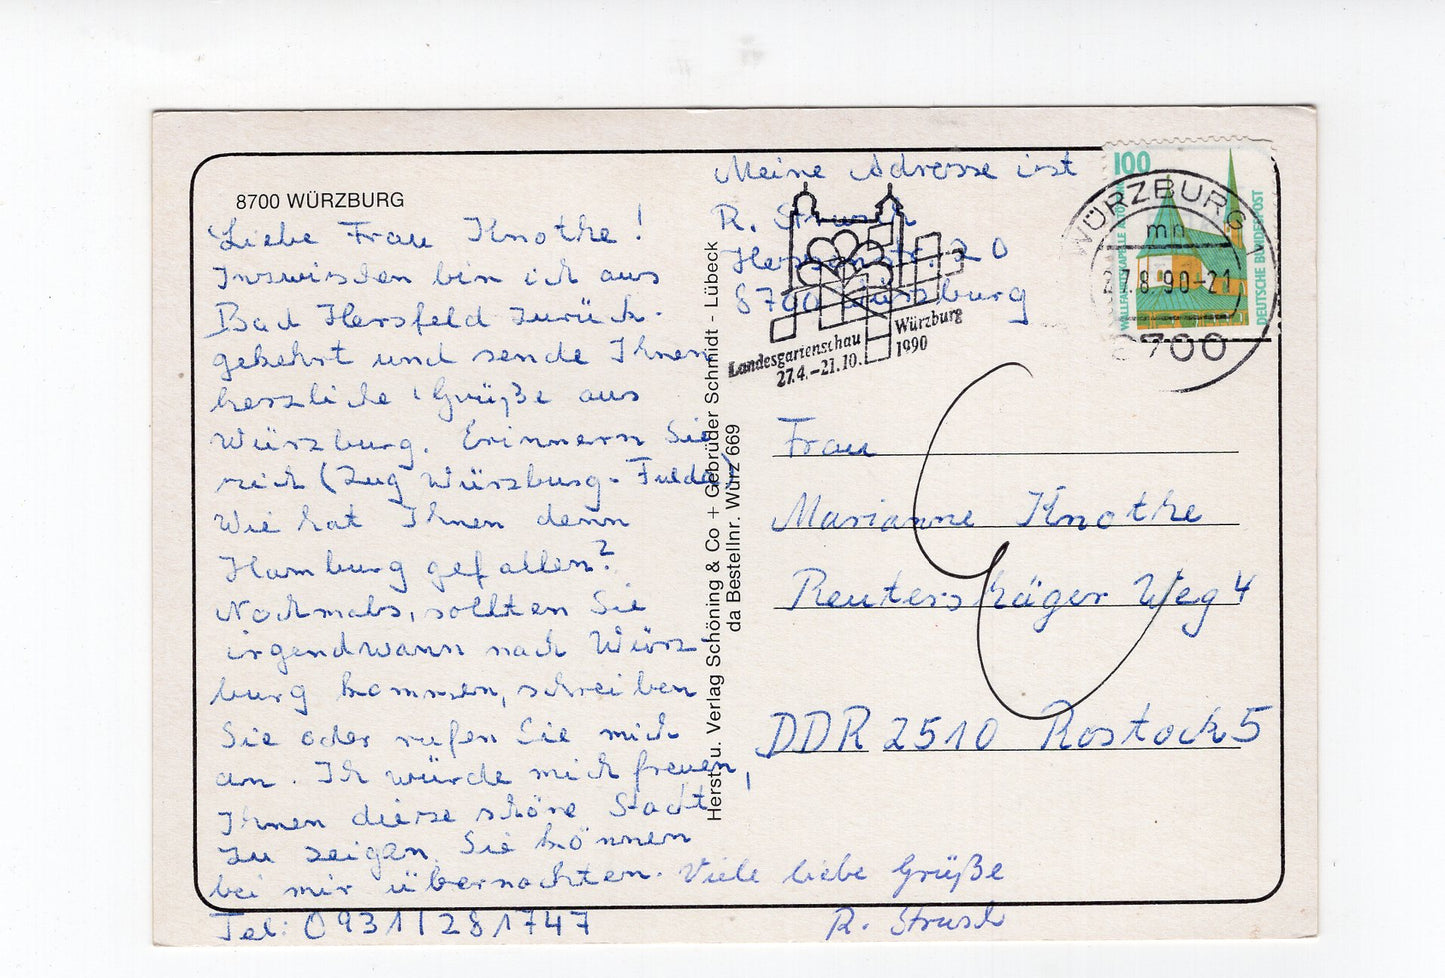 8700 WÜRZBURG
Liebe Frau Knothe!
Inzwischen bin ich aus
Bad Hersfeld zurück-
gekehrt und sende Ihnen
herzliche Grüße aus
Würzburg. Erinnern Sie
sich (Zug Würzburg-Fulda)
Wie hat Ihnen denn
Hamburg gefallen?
Nochmals, sollten Sie
irgendwann nach Würz-
burg kommen, schreiben
Sie oder rufen Sie mich
an. Ich würde mich freuen,
Ihnen diese schöne Stadt
zu zeigen. Sie können
bei mir übernachten. Viele liebe Grüße
R. Strusch
Tel: 0931/281747
Herst. u. Verlag Schöning & Co + Gebrüder Schmidt - Lübeck
da Bestellnr. Würz 669
Meine Adresse ist
R. Strusch
20
8700 Würzburg
Landesgartenschau Würzburg
27.4.-21.10. 1990
100
WALLFAHRTSKAPELLE
DEUTSCHE BUNDESPOST
WÜRZBURG
mn
27.8.90-21
8700
Frau
Marianne Knothe
Reutershäger Weg 4
DDR 2510 Rostock 5